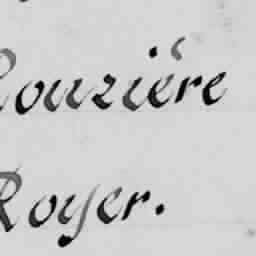 Rouzière
Royer.